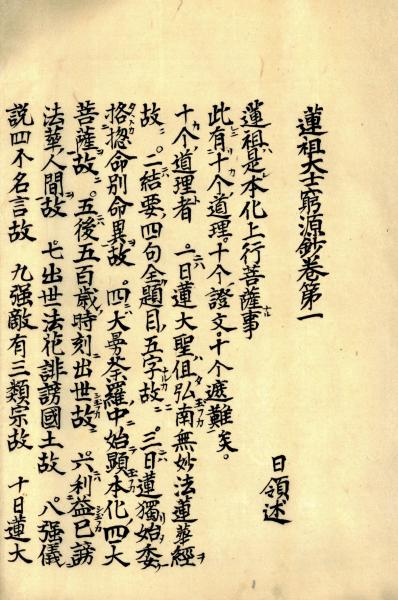 蓮祖大士窮源鈔卷第一
日領述
蓮祖是本化上行菩薩事
此有十个道理。十个證文。十个遮難矣。
十个道理者 一日蓮大聖但弘南無妙法蓮華經
故。二結要四句全題目五字故。三日蓮獨始委
挌揔命別命異故。四大曼荼羅中始顕本化四大
菩薩故。五後五百歳時刻出世故。六利益已謗
法華人間故 七出世法花誹謗國土故。八强儀
説四个名言故 九强敵有三類宗故 十日蓮大